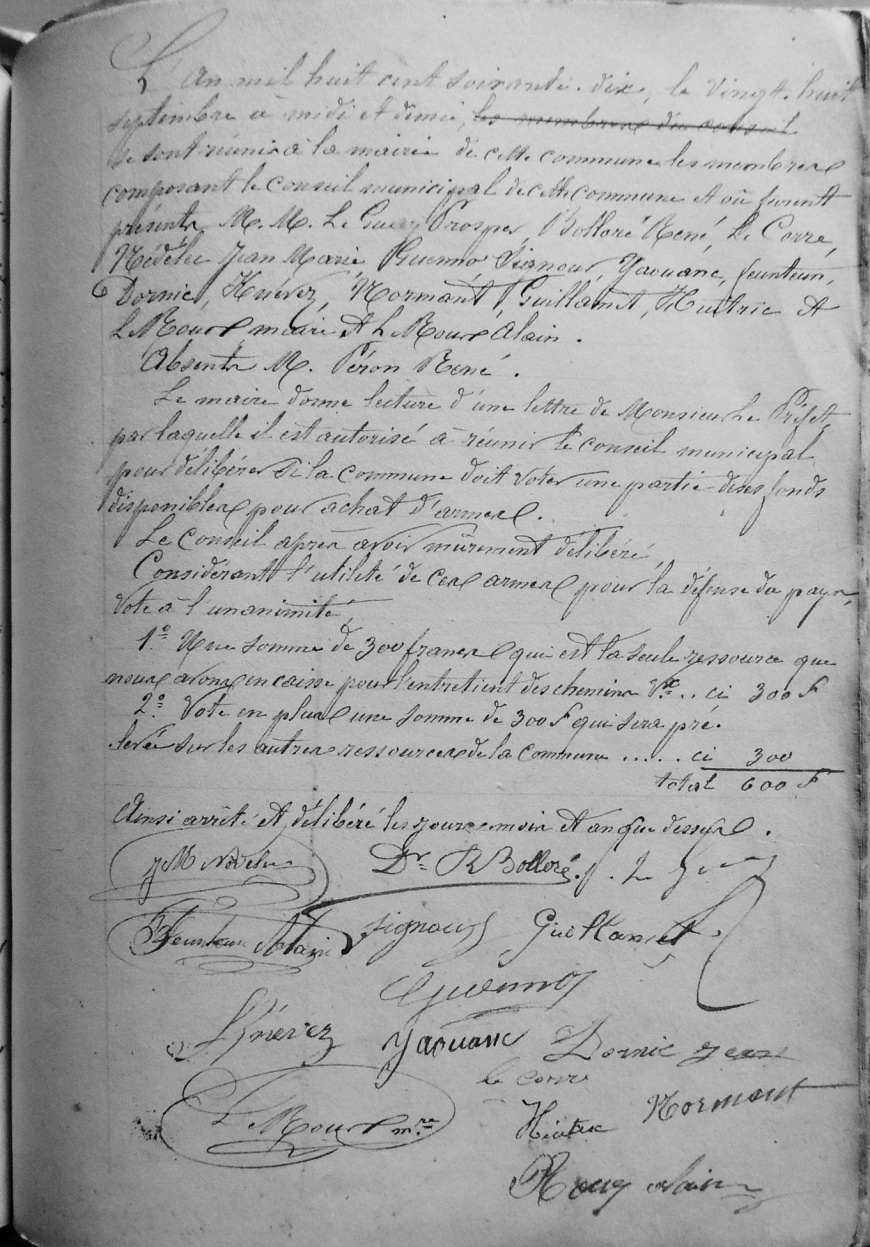 L'an mil huit cent soixante-dix, le vingt-huit
septembre à midi et demie, les membres du conseil
se sont réunis à la mairie de cette commune les membres
composant le conseil municipal de cette commune et où furent
présents M. M. Le Guay Prosper, Bolloré René, Le Corre,
Nédélec Jean Marie, Guenno, Signour, Yaouanc, feunteun,
Dornic, Knévez, Normant, Guillamet, Huitric et
Le Roux maire et Le Roux Alain.
Absents M. Péron René.
Le maire donne lecture d'une lettre de Monsieur Le Préfet,
par laquelle il est autorisé à réunir le conseil municipal
pour délibérer si la commune doit voter une partie de ses fonds
disponibles pour achat d'armes.
Le Conseil après avoir mûrement délibéré,
Considérant l'utilité de ces armes pour la défense du pays,
Vote à l'unanimité
1º Une somme de 300 francs qui est la seule ressource que
nous avons en caisse pour l'entretient des chemins Vx .. ci 300 F
2º Vote en plus une somme de 300 F qui sera pré-
levée sur les autres ressources de la commune ..... ci 300
total 600 F
Ainsi arrêté et délibéré les jours mois et an que dessus.
JM Nédélec Dr R Bolloré P. Le
feunteun Alain Signour Guillamet
Guenno
Knévez Yaouanc Dornic Jean
le corre
Le Roux mre Huitric Normant
Roux alain